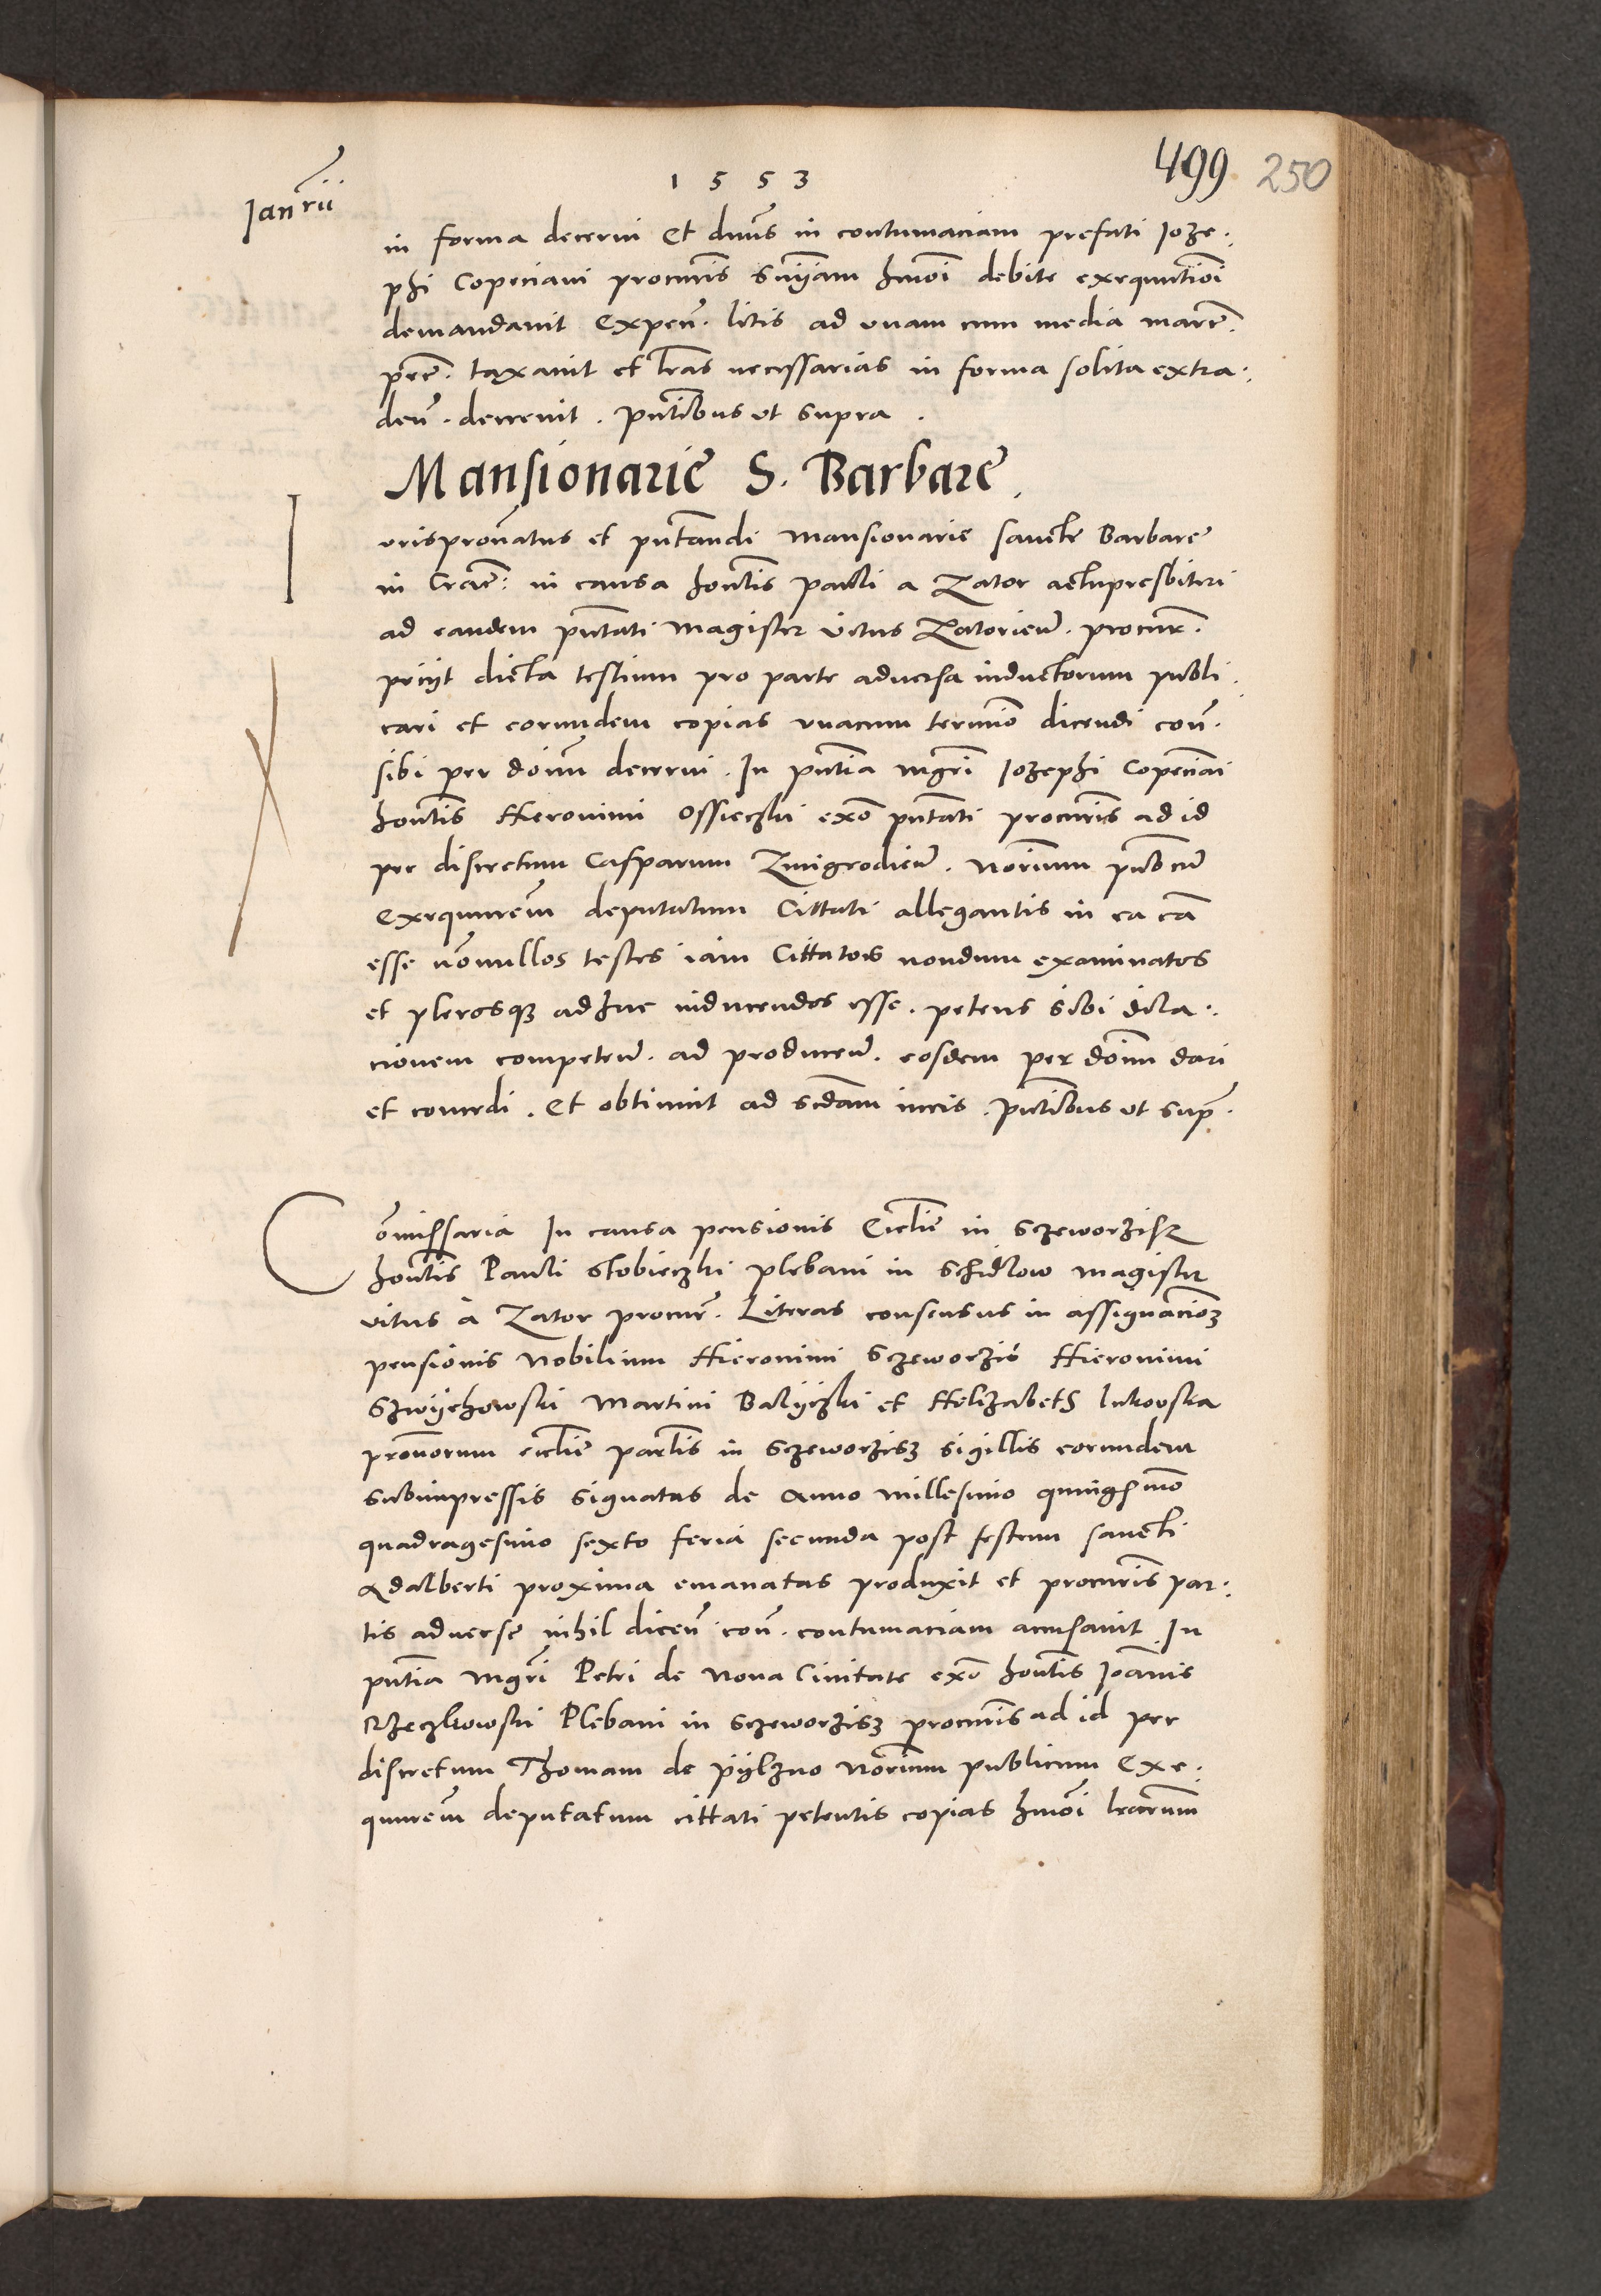 Ianrii
1553
499 250
in forma decerni Et dnus in contumaciam prefati Joze:
phi Copeciani procuris sniam hmoi debite exequutioi
demandavit Expen. litis ad unam cum media marc.
pec. taxavit et lras necessarias in forma solita extra:
den. decrevit. pntibus ut supra.
Mansionarie S. Barbare.
I
urispronatus et pntandi Mansionarie sancte Barbare
in Crac: in causa hontis Pauli a Zator archipresbiteri
ad eandem pntati Magister Vitus Zatorien. procur.
peciit dicta testium pro parte adversa inductorum publi:
cari et eorundem copias unacum termio dicendi con.
sibi per donm decerni. In pntia Mgri Jozephi Copeciani
hontis Hieronimi Ossieczki exo pntati procuris ad id
per discretum Casparum Zmigrodien. Norium pub cum
Exequutem deputatum Cittati allegantis in ea ca
esse nonullos testes iam Cittatos nondum examinatos
et plerosq adhuc inducendos esse. petens sibi dila:
cionem competen. ad producen. eosdem per donm dari
et concedi. Et obtinuit ad scdam iuris. pntibus ut sup.
Comissaria In causa pensionis Ecclie in Sczeworzisz
hontis Pauli Stobieczki plebani in Schidlow magister
vitus a Zator procur. Literas consensus in assignacioz
pensionis Nobilium Hieronimi Sczeworzis Hieronimi
Szwijchowski Martini Balijczki et Helizabeth lukovska
pronorum ecclie parlis in Sczeworzisz sigillis eorundem
subimpressis signatas de Anno millesimo quingmo
quadragesimo sexto feria secunda post festum sancti
Adalberti proxima emanatas produxit et procuris par:
tis adverse nihil dicen con. contumaciam acusavit. In
pntia Mgri Petri de Nova Civitate exo hontis Joannis
Rzeczkowski Plebani in Sczeworzisz procuris ad id per
discretum Thomam de pijlzno Norium publicum Exe:
qutem deputatum cittati petentis copias hmoi lrarum